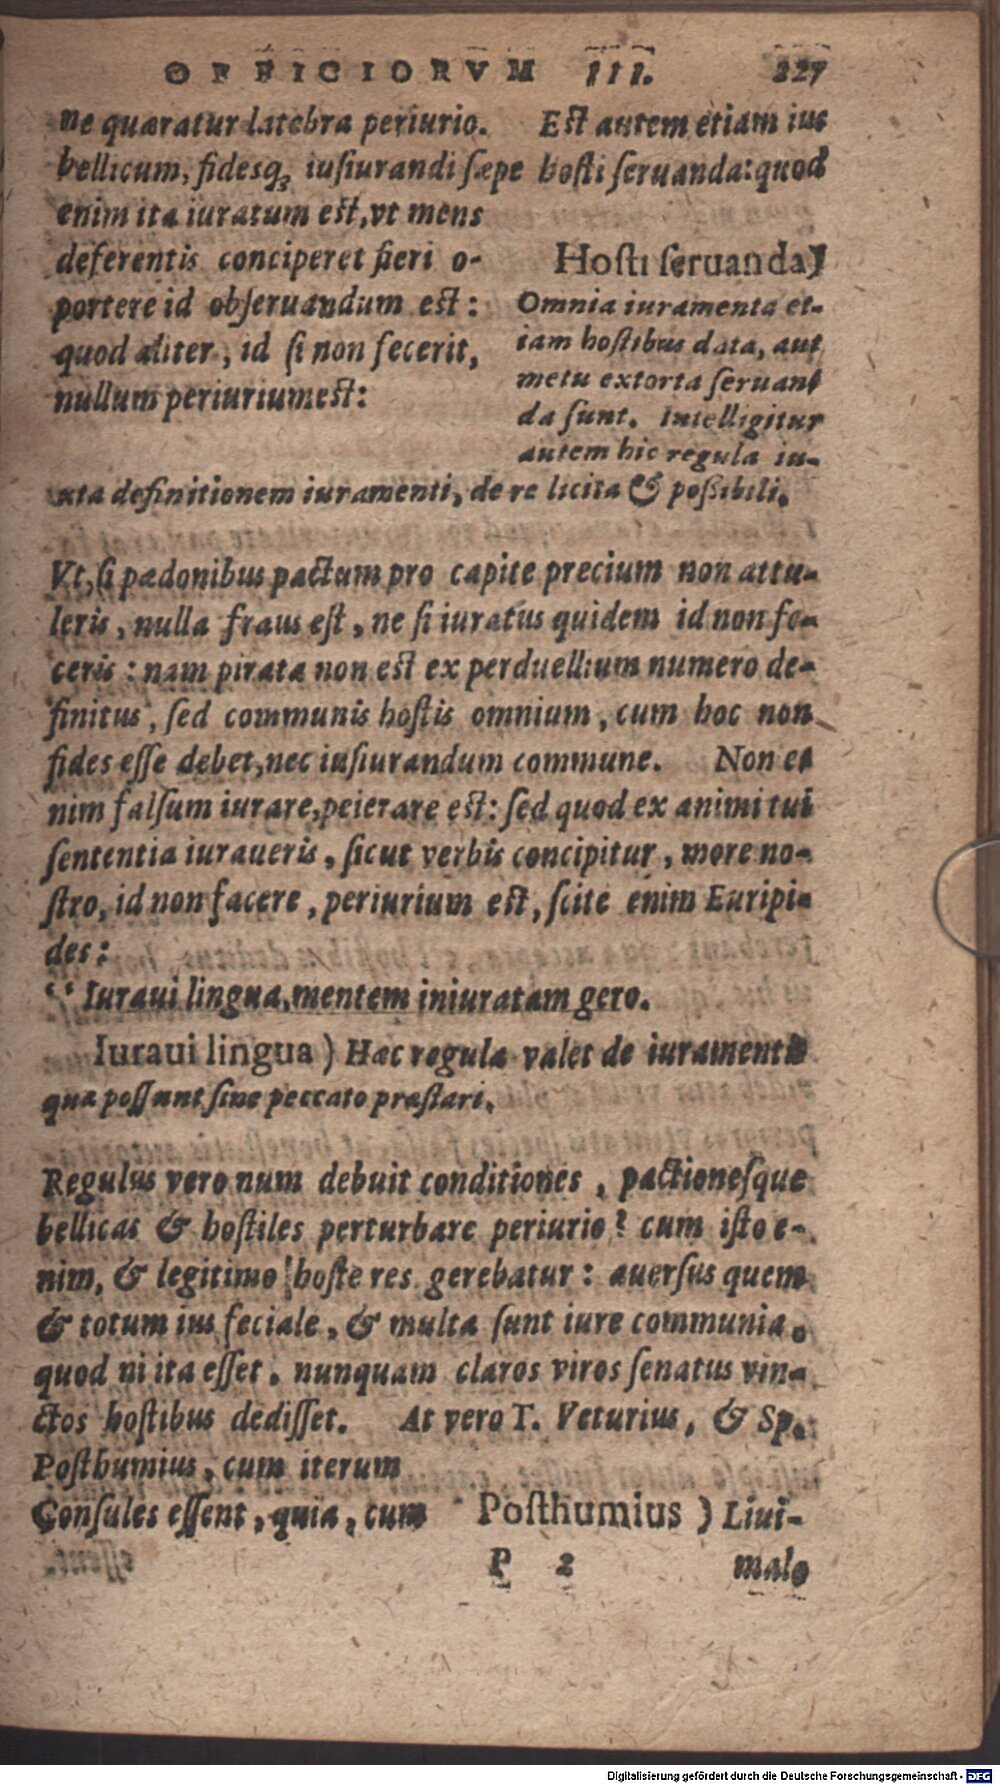 OFFICIORVM III. 227
ne quæratur latebra periurio. Est autem etiam ius
bellicum, fidesq; iusiurandi sæpe hosti ſeruanda: quod
enim ita iuratum eſt, vt mens
deferentis conciperet fieri o-
portere id obſeruandum eſt:
quod aliter, id ſi non fecerit,
nullum periurium eſt:
Hoſti ſeruanda)
Omnia iuramenta et-
iam hoſtibus data, aut
metu extorta ſeruan-
da ſunt. Intelligitur
autem hic regula iu-
xta definitionem iuramenti, de re licita & poſsibili.
Vt, ſi prædonibus pactum pro capite precium non attu-
leris, nulla fraus eſt, ne ſi iuratus quidem id non fe-
ceris: nam pirata non eſt ex perduellium numero de-
finitus, ſed communis hoſtis omnium, cum hoc non
fides eſſe debet, nec iuſiurandum commune. Non e-
nim falſum iurare, peierare eſt: ſed quod ex animi tui
ſententia iuraueris, ſicut verbis concipitur, more no-
ſtro, id non facere, periurium eſt, ſcite enim Euripi-
des:
“ Iuraui lingua, mentem iniuratam gero.
Iuraui lingua) Hæc regula valet de iuramentis
quæ poſſunt ſine peccato præſtari.
Regulus vero num debuit conditiones, pactioneſque
bellicas & hoſtiles perturbare periurio? cum iſto e-
nim, & legitimo hoſte res gerebatur: auerſus quem
& totum ius feciale, & multa ſunt iure communia.
quod ni ita eſſet, nunquam claros viros ſenatus vin-
ctos hoſtibus dediſſet. At vero T. Veturius, & Sp.
Poſthumius, cum iterum
Conſules eſſent, quia, cum
Poſthumius) Liui-
P 2 male
Digitalisierung gefördert durch die Deutsche Forschungsgemeinschaft - DFG